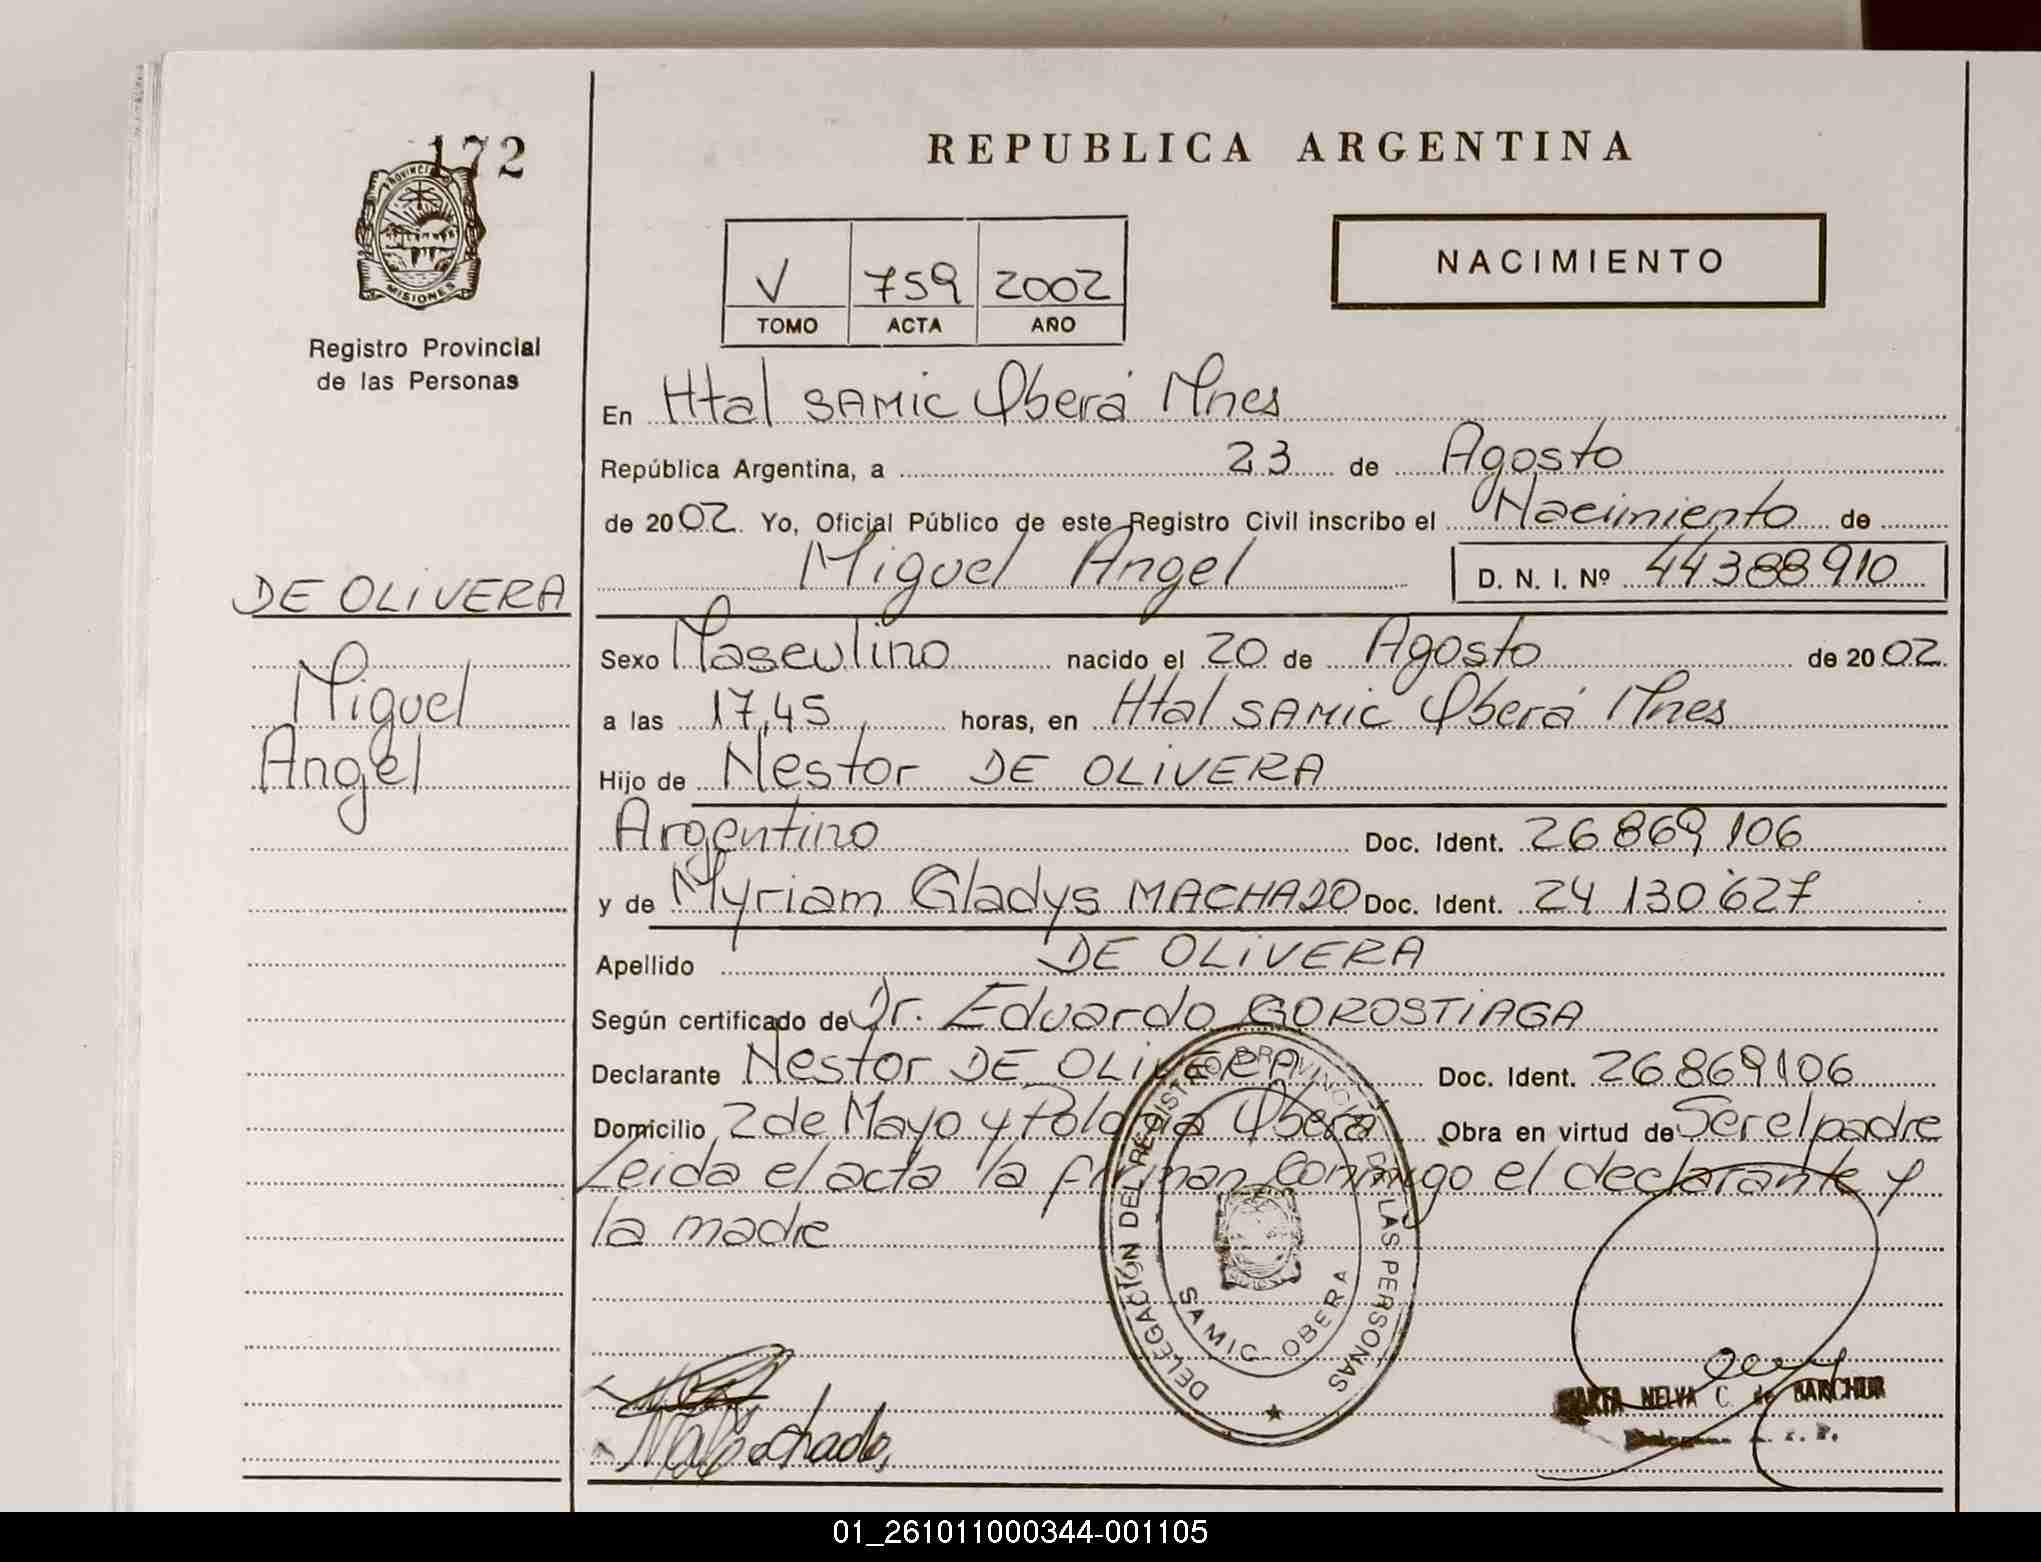 172
PROVINCIA
MISIONES
Registro Provincial
de las Personas
DE OLIVERA
Miguel
Angel
REPUBLICA ARGENTINA
V 759 2002
TOMO ACTA AÑO
NACIMIENTO
En Htal SAMIC Oberá Mnes
República Argentina, a 23 de Agosto
de 2002 Yo, Oficial Público de este Registro Civil inscribo el Nacimiento de
Miguel Angel D. N. I. Nº 44388910
Sexo Masculino nacido el 20 de Agosto de 2002
a las 17,45 horas, en Htal SAMIC Oberá Mnes
Hijo de Nestor DE OLIVERA
Argentino Doc. Ident. 26869106
y de Myriam Gladys MACHADO Doc. Ident. 24 130 627
Apellido DE OLIVERA
Según certificado de Dr. Eduardo GOROSTIAGA
Declarante Nestor DE OLIVERA Doc. Ident. 26869106
Domicilio 2 de Mayo y Polonia Oberá Obra en virtud de Ser el padre
Leida el acta la firman conmigo el declarante y
la madre
DELEGACIÓN DEL REGISTRO PROVINCIAL DE LAS PERSONAS
SAMIC OBERA
MARTA NELVA C. de BARCHUK
01_261011000344-001105